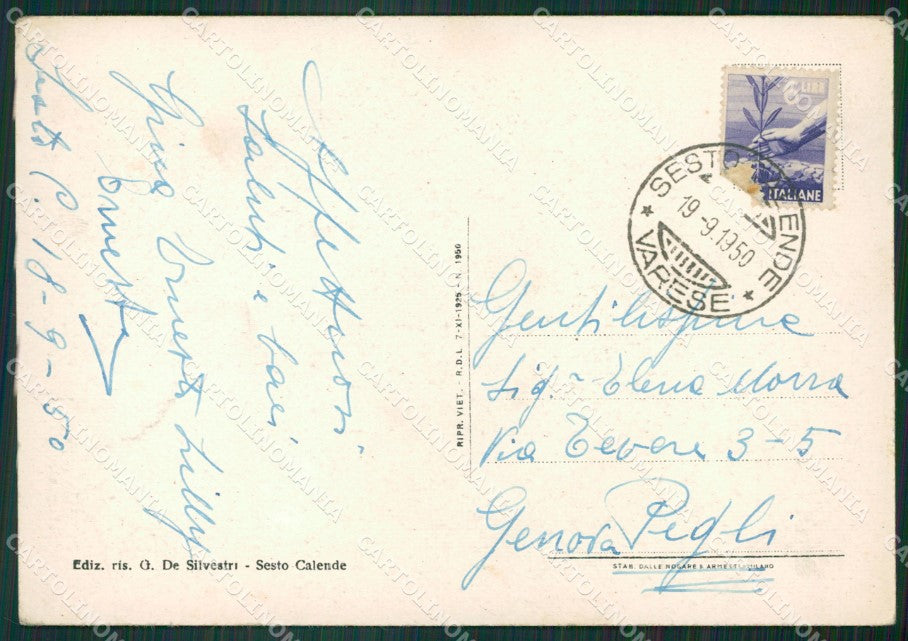 Sesto C. 18-9-50
Affettuosi
saluti e baci
Ernesta
Ediz. ris. G. De Silvestri - Sesto Calende
RIPR. VIET. - R.D.L. 7-XI-1925 - N. 1950
ITALIANE
SESTO CALENDE
19-9.1950
VARESE
Sig.ra Elena Morra
Via Tevere 3-5
Genova Pegli
STAB. DALLE NOGARE & ARMETTI-MILANO
CARTOLINOMANIA